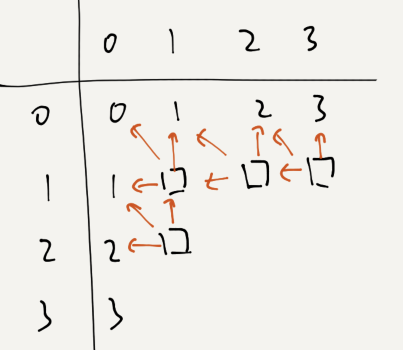 0 1 2 3
0 0 1 2 3
1 1
2 2
3 3